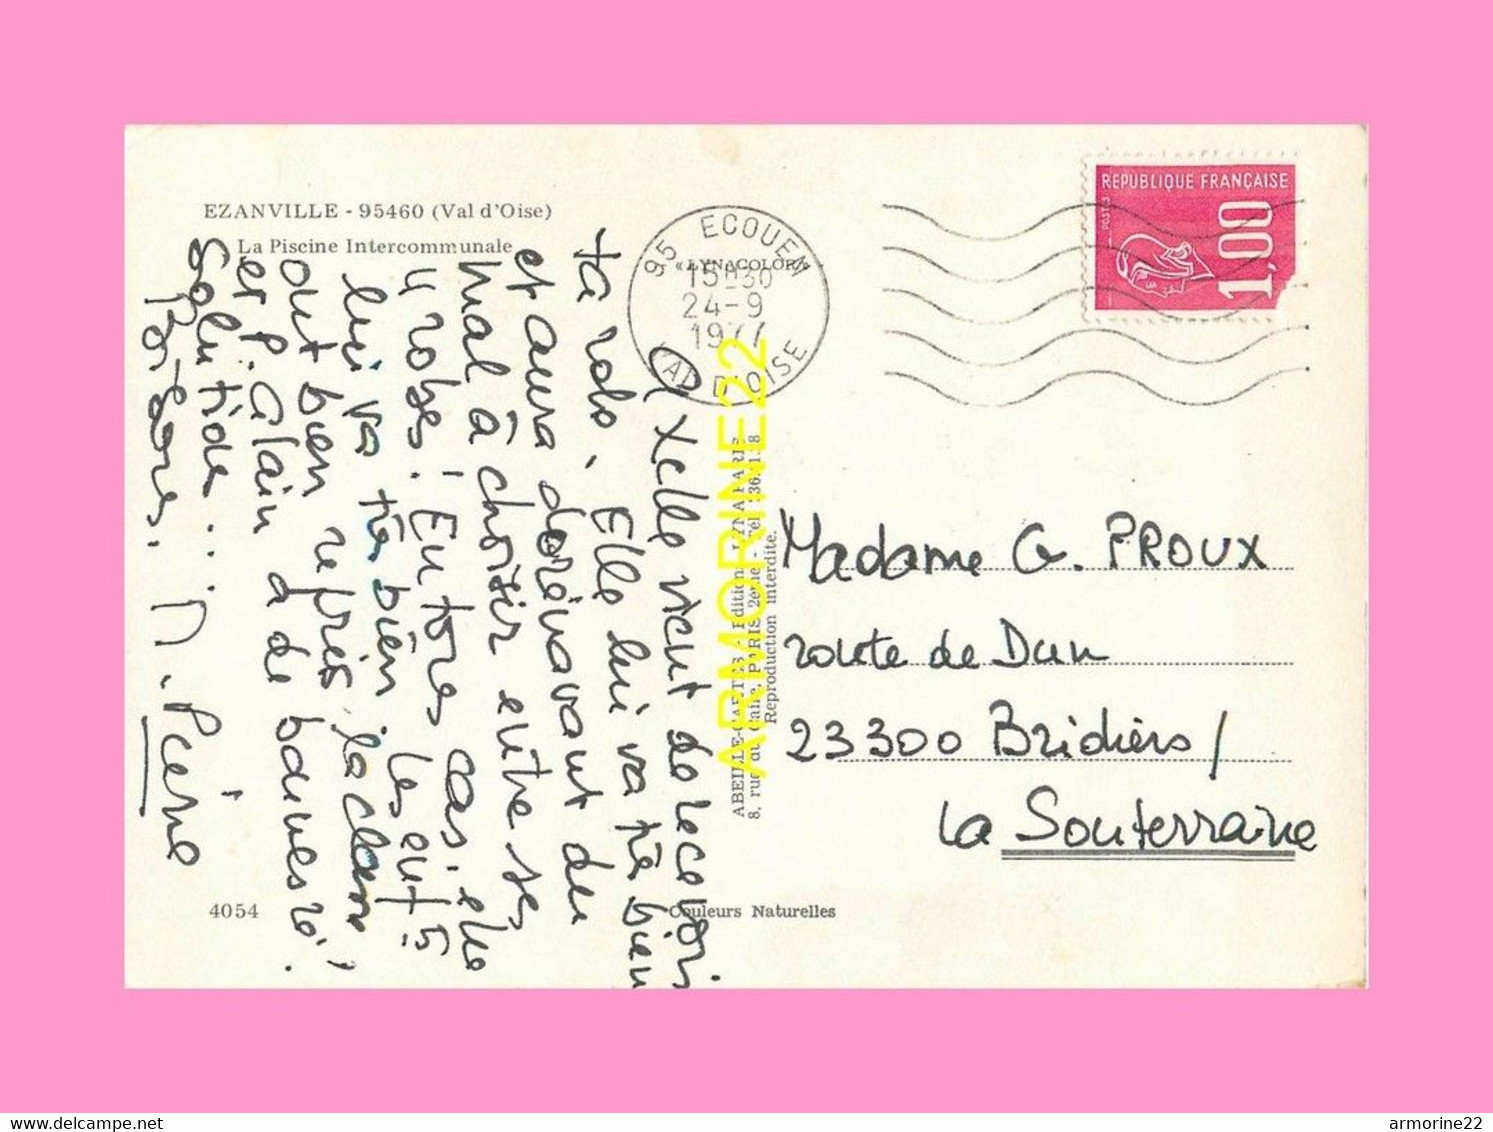 EZANVILLE - 95460 (Val d'Oise)
La Piscine Intercommunale
95 ECOUEN
« LYNACOLOR »
15H30
24-9
1977
VAL D'OISE
REPUBLIQUE FRANÇAISE
POSTES
1,00
Axelle vient de recevoir
ta robe. Elle lui va très bien
et aura dorénavant du
mal à choisir entre ses
4 robes! En tores cas, elle
lui va très bien les enf ts
ont bien repris la classe,
et P. Alain a de bonnes
Solitide...
Portzore. N. Peine
ABEILLE-CARTES - Editions LYNA-PARIS
8, rue du Caire, PARIS 2ème - Tél.
Reproduction interdite.
ARMORINE22
Madame G. PROUX
route de Dun
23300 Bridiers /
La Souterraine
4054
Couleurs Naturelles
delcampe.net
armorine22